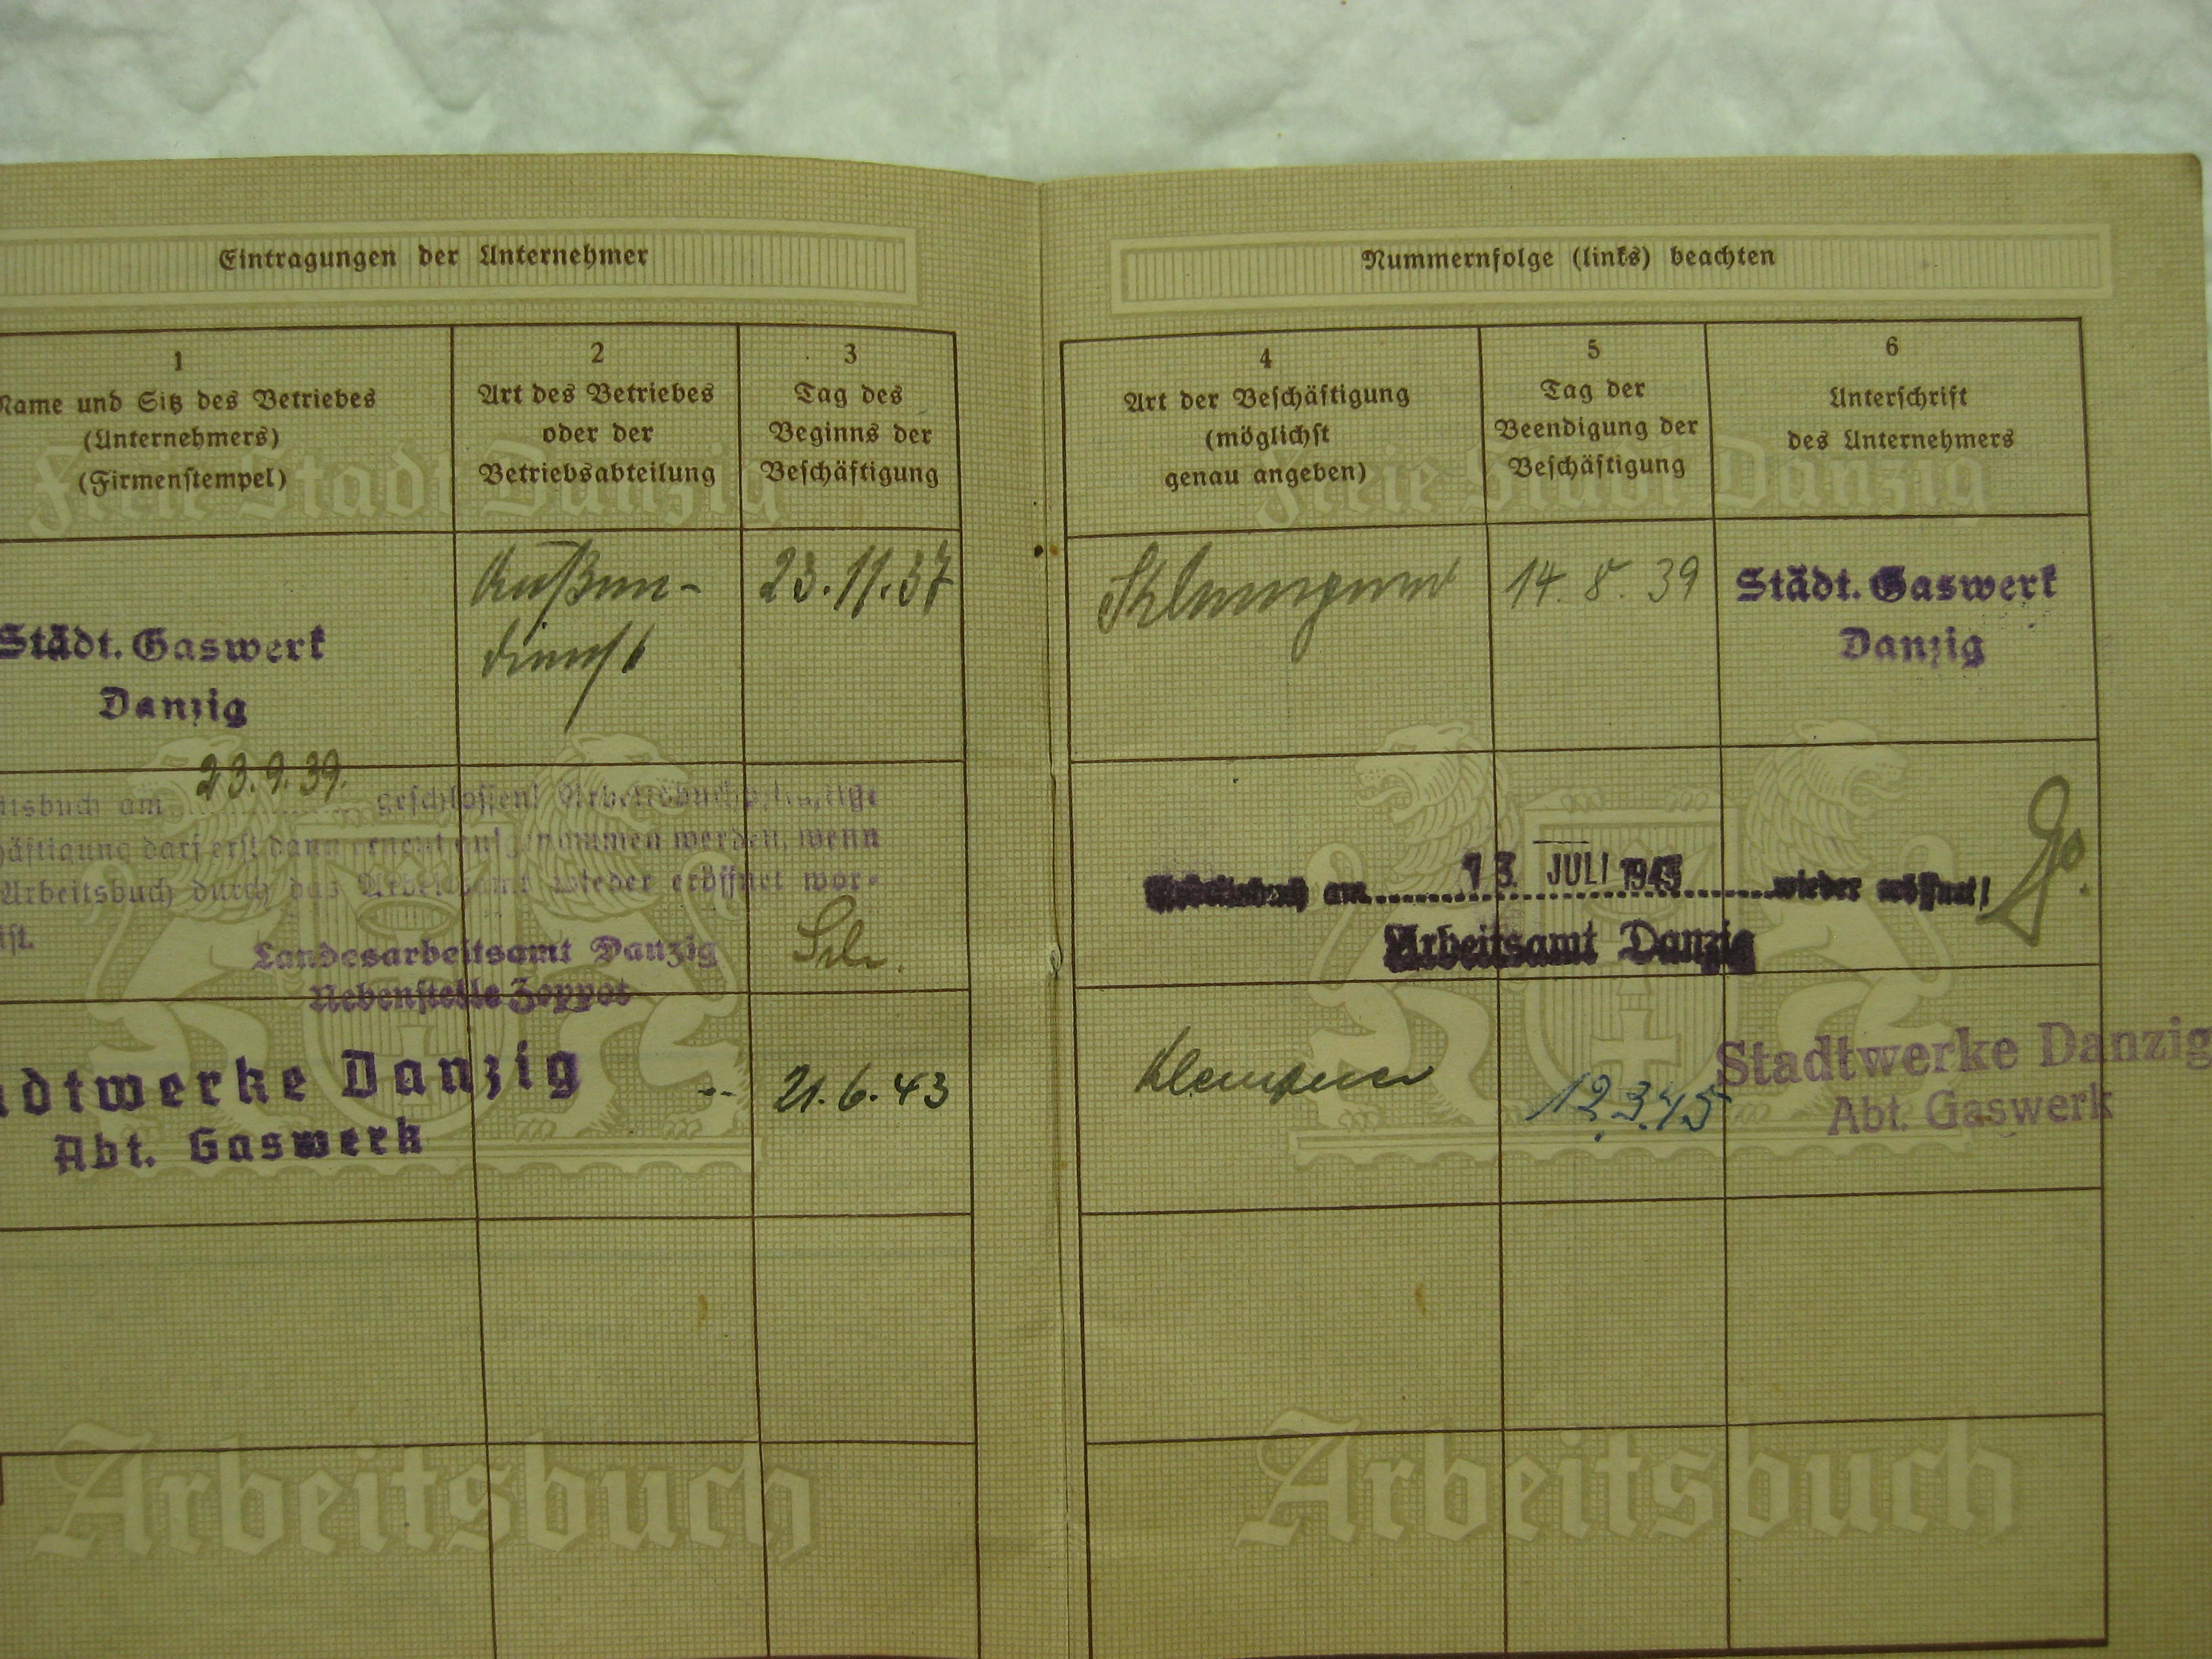 Eintragungen der Unternehmer
1
Name und Sitz des Betriebes
(Unternehmers)
(Firmenstempel)
2
Art des Betriebes
oder der
Betriebsabteilung
3
Tag des
Beginns der
Beschäftigung
Freie Stadt Danzig
Städt. Gaswerk
Danzig
Außen-
dienst
23.11.37
23.9.39.
itsbuch am geschlossen! Arbeitsbuchpflichtige
häftigung darf erst dann erneut aufgenommen werden, wenn
Arbeitsbuch durch das Arbeitsamt wieder eröffnet wor-
ist.
Landesarbeitsamt Danzig
Nebenstelle Zoppot
adtwerke Danzig
Abt. Gaswerk
21.6.43
Arbeitsbuch
Nummernfolge (links) beachten
4
Art der Beschäftigung
(möglichst
genau angeben)
5
Tag der
Beendigung der
Beschäftigung
6
Unterschrift
des Unternehmers
Freie Stadt Danzig
14.8.39
Städt. Gaswerk
Danzig
Arbeitsbuch am 13. JULI 1943 wieder eröffnet!
Arbeitsamt Danzig
Klempner
12.3.45
Stadtwerke Danzig
Abt. Gaswerk
Arbeitsbuch